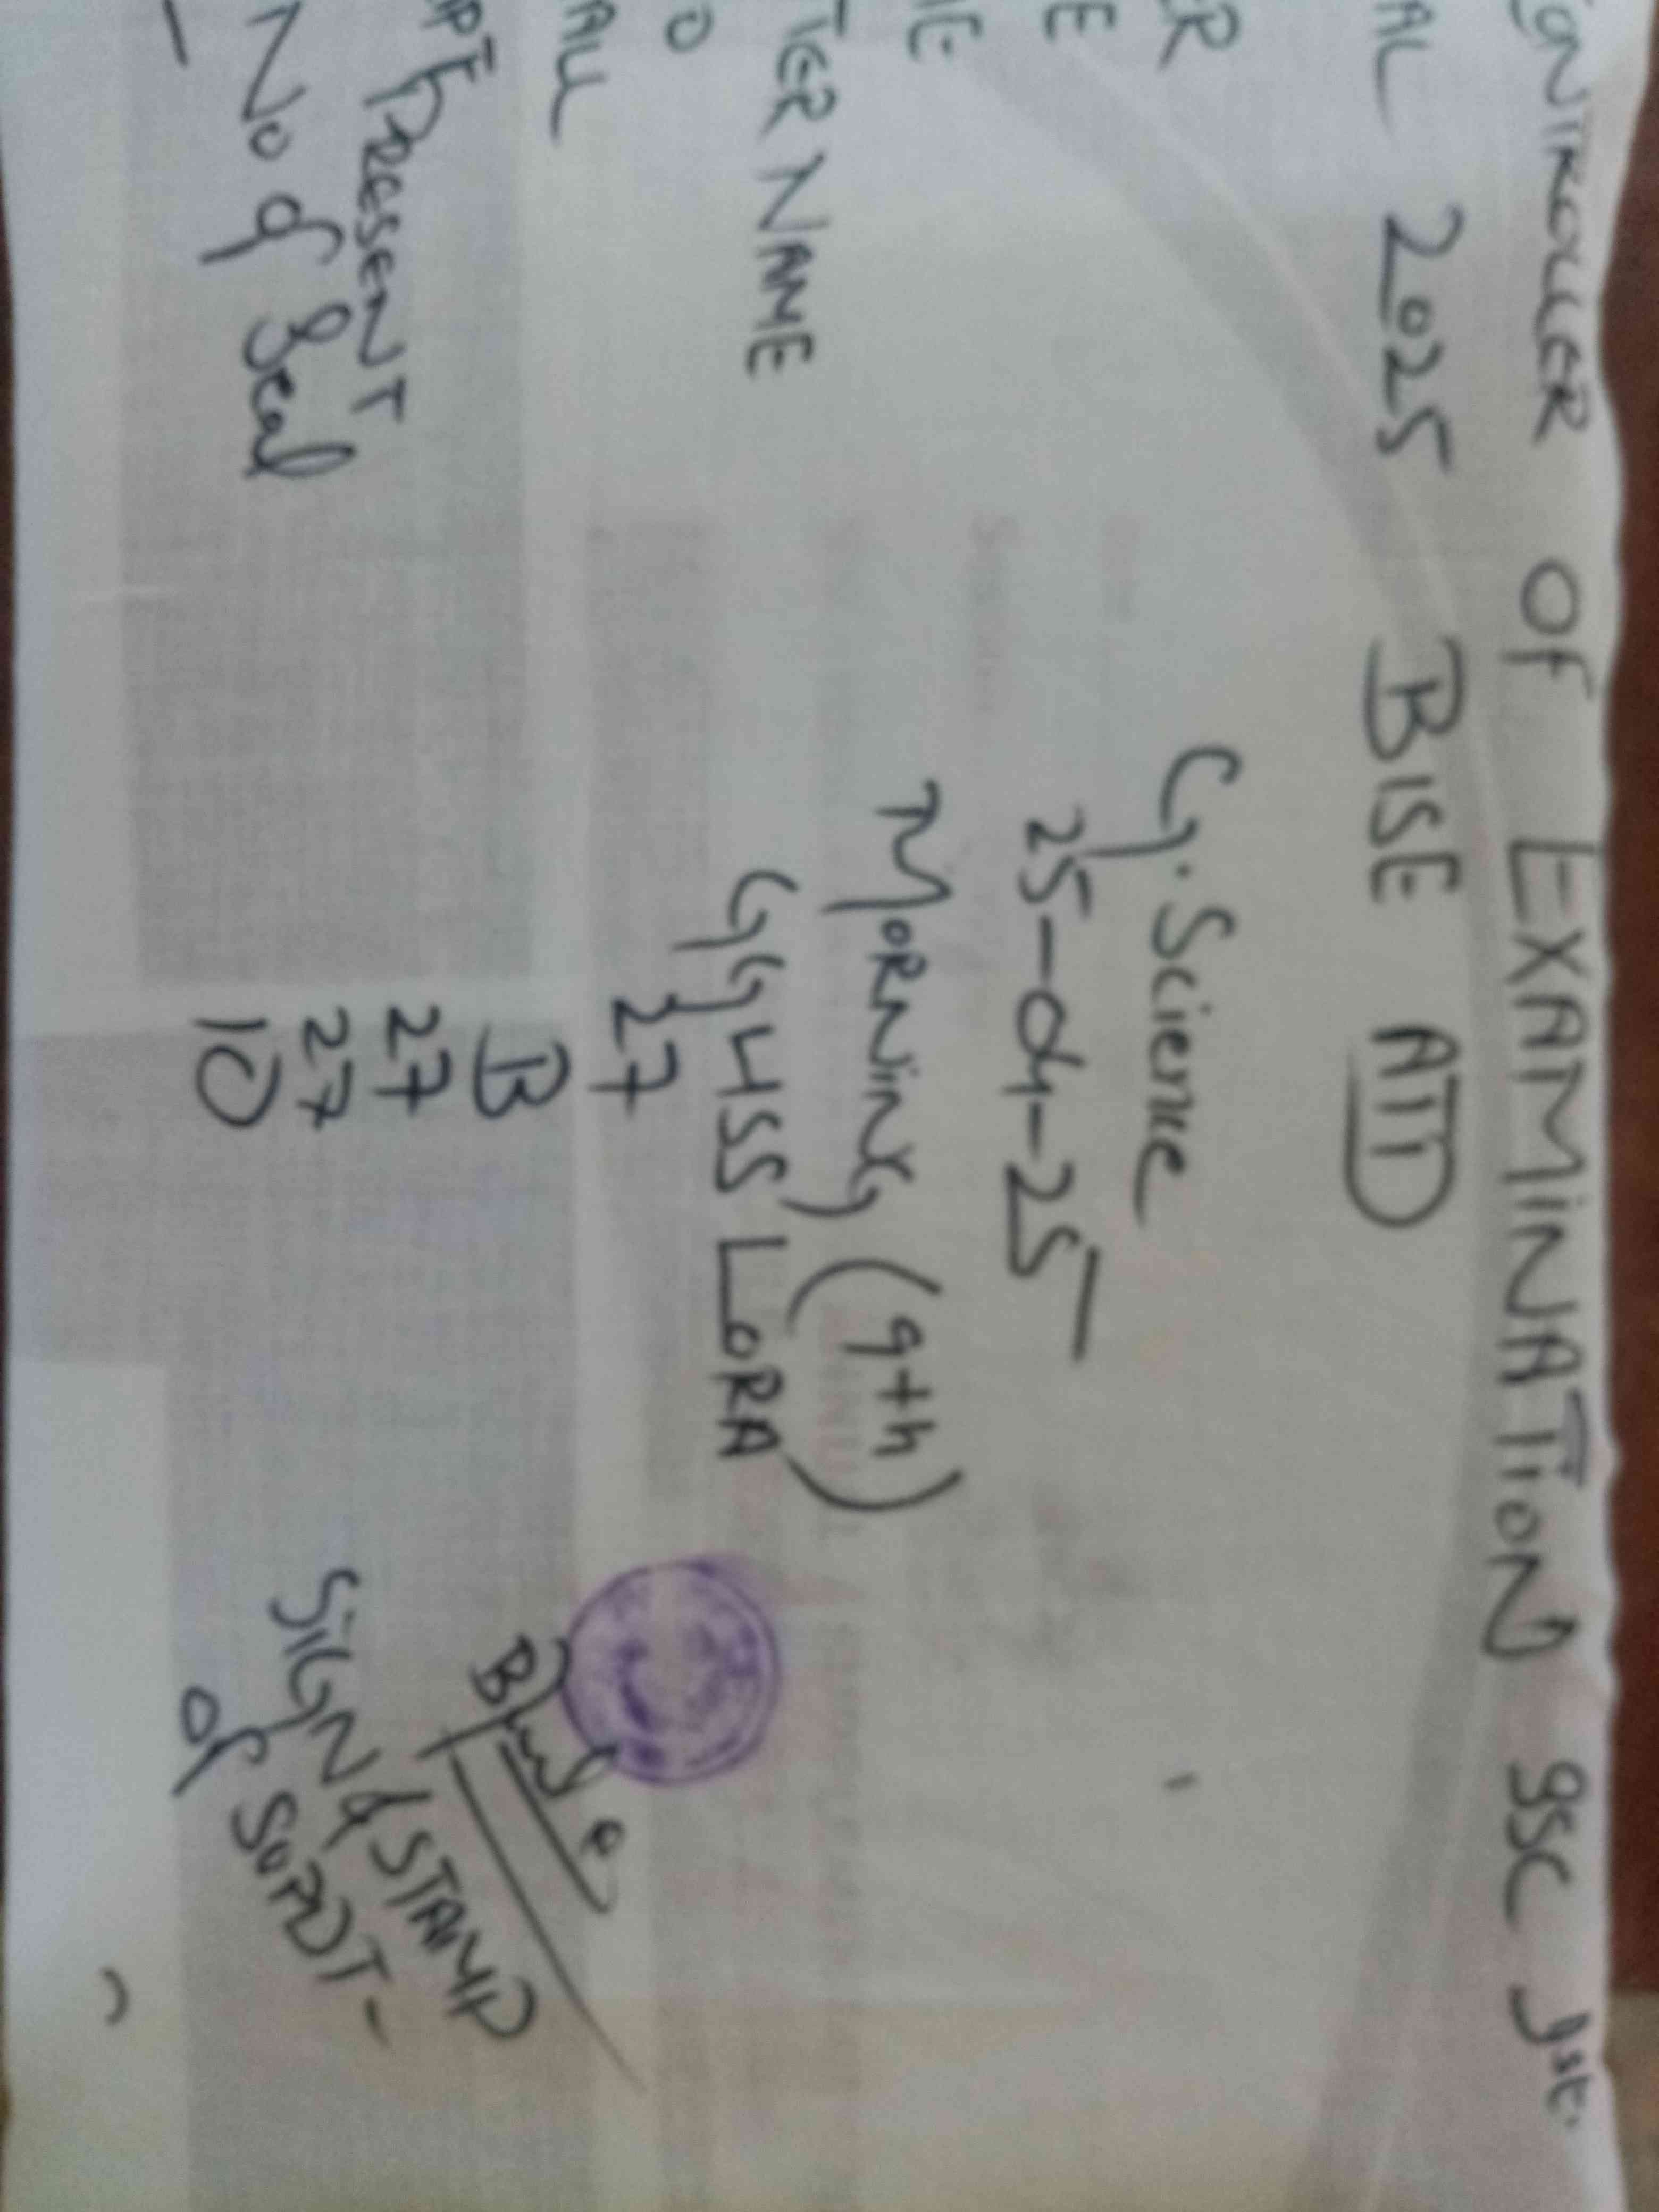 CONTROLLER OF EXAMINATION SSC 1st.
AL 2025 BISE ATD
ER G.Science
E 25-04-25
ME MORNING (9th)
TER NAME GGHSS LORA
D 27
ALL B
PT PRESENT 27
27
No of Seal 10
SIGN & STAMP
of SUPDT-